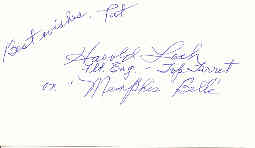 Best wishes, Pat
Harold Loch
Flt. Eng. - Top Turret
on "Memphis Belle